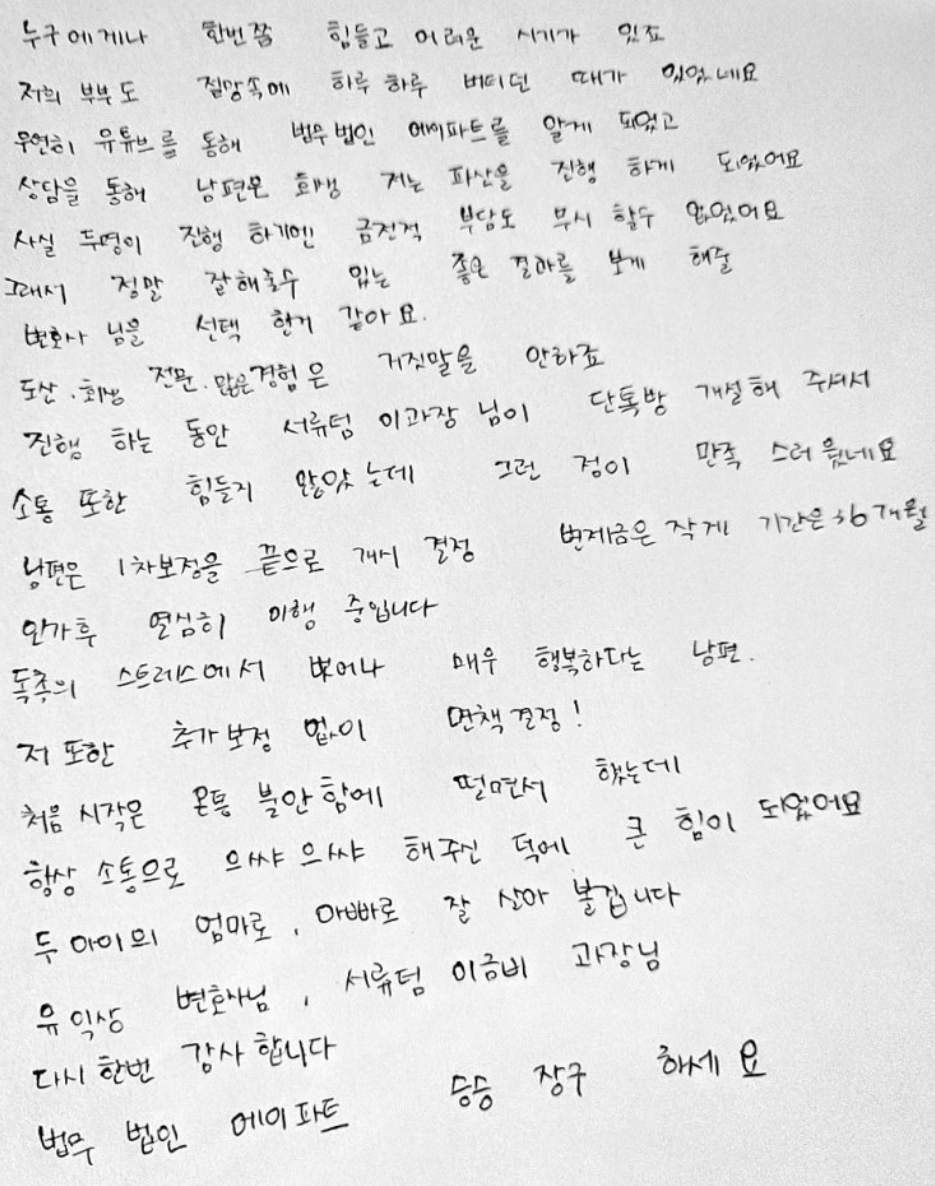 누구에게나 한번쯤 힘들고 어려운 시기가 있죠
저희 부부도 절망속에 하루 하루 버티던 때가 있었네요
우연히 유튜브를 통해 법무법인 에이파트를 알게 되었고
상담을 통해 남편은 회생 저는 파산을 진행 하게 되었어요
사실 두명이 진행 하기엔 금전적 부담도 무시 할수 없었어요
그래서 정말 잘해줄수 있는 좋은 결과를 보게 해줄
변호사 님을 선택 한거 같아요.
도산.회생 전문.많은경험은 거짓말을 안하죠
진행 하는 동안 서류텀 이과장 님이 단톡방 개설해 주셔서
소통 또한 힘들지 않았는데 그런 점이 만족 스러웠네요
남편은 1차보정을 끝으로 개시 결정 변제금은 작게 기간은 36개월
인가후 열심히 이행 중입니다
독촉의 스트레스에서 벗어나 매우 행복하다는 남편.
저 또한 추가보정 없이 면책결정!
처음 시작은 온통 불안함에 떨면서 했는데
항상 소통으로 으쌰으쌰 해주신 덕에 큰 힘이 되었어요
두아이의 엄마로, 아빠로 잘 살아 볼겁니다
유익상 변호사님, 서류텀 이금비 과장님
다시한번 감사합니다
법무 법인 에이파트 승승 장구 하세요